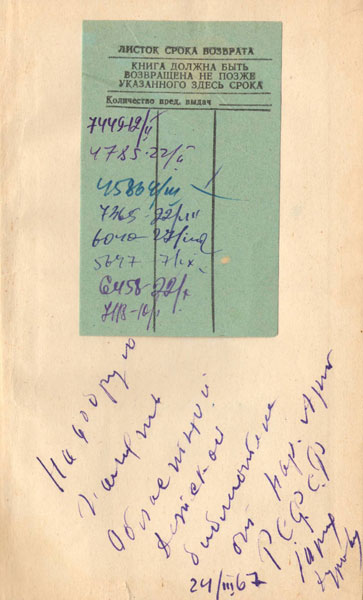 ЛИСТОК СРОКА ВОЗВРАТА
КНИГА ДОЛЖНА БЫТЬ
ВОЗВРАЩЕНА НЕ ПОЗЖЕ
УКАЗАННОГО ЗДЕСЬ СРОКА
Количество пред. выдач
7449-12/II
4785-22/II
4586
7365-22/III
6040-
5697-7/IX
6458-22/X
На добрую
память
Областной
детской
библиотеке
от нар. арт
Р.С.Ф.С.Р
24/III 67